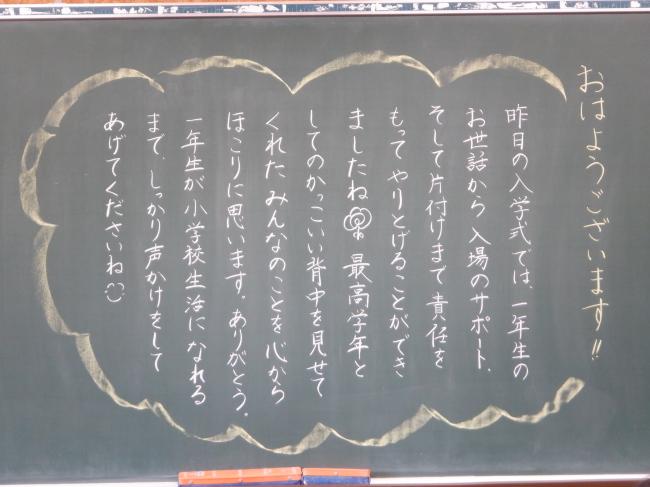 おはようございます!!
昨日の入学式では、一年生の
お世話から 入場のサポート、
そして片付けまで 責任を
もって やりとげることができ
ましたね 最高学年と
してのかっこいい背中を見せて
くれた みんなのことを 心から
ほこりに思います。ありがとう。
一年生が小学校生活になれる
まで、しっかり声かけをして
あげてくださいね